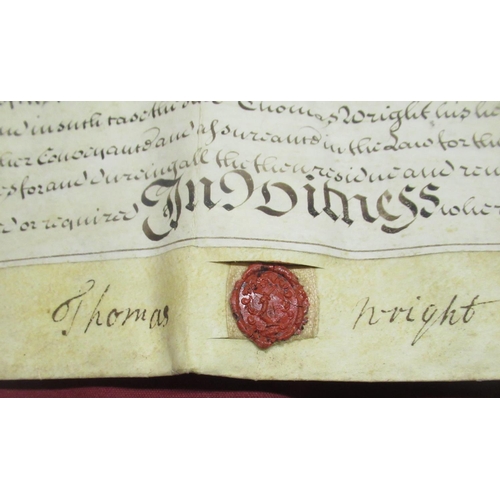 and in such case the said Thomas Wright his he
her Conveyances and assurances in the Law for th
es for and during all the then residue and rem
d or required In Witness where
Thomas Wright